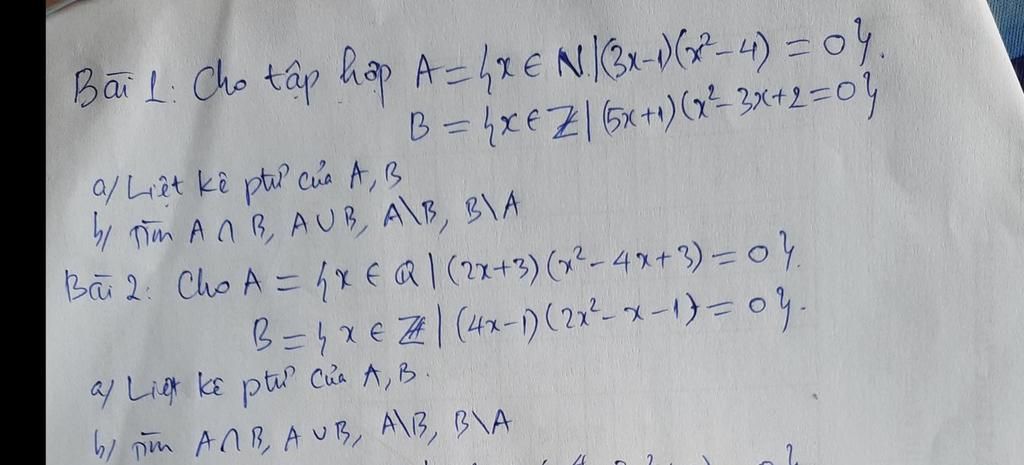 Bài 1: Cho tập hợp A = {x ∈ N | (3x-1)(x²-4) = 0}.
B = {x ∈ Z | (5x+1)(x²-3x+2=0}
a/ Liệt kê ptử của A, B
b/ Tìm A ∩ B, A ∪ B, A\B, B\A
Bài 2: Cho A = {x ∈ Q | (2x+3)(x²-4x+3) = 0}.
B = {x ∈ Z | (4x-1)(2x²-x-1) = 0}.
a/ Liệt kê ptử của A, B.
b/ Tìm A ∩ B, A ∪ B, A\B, B\A